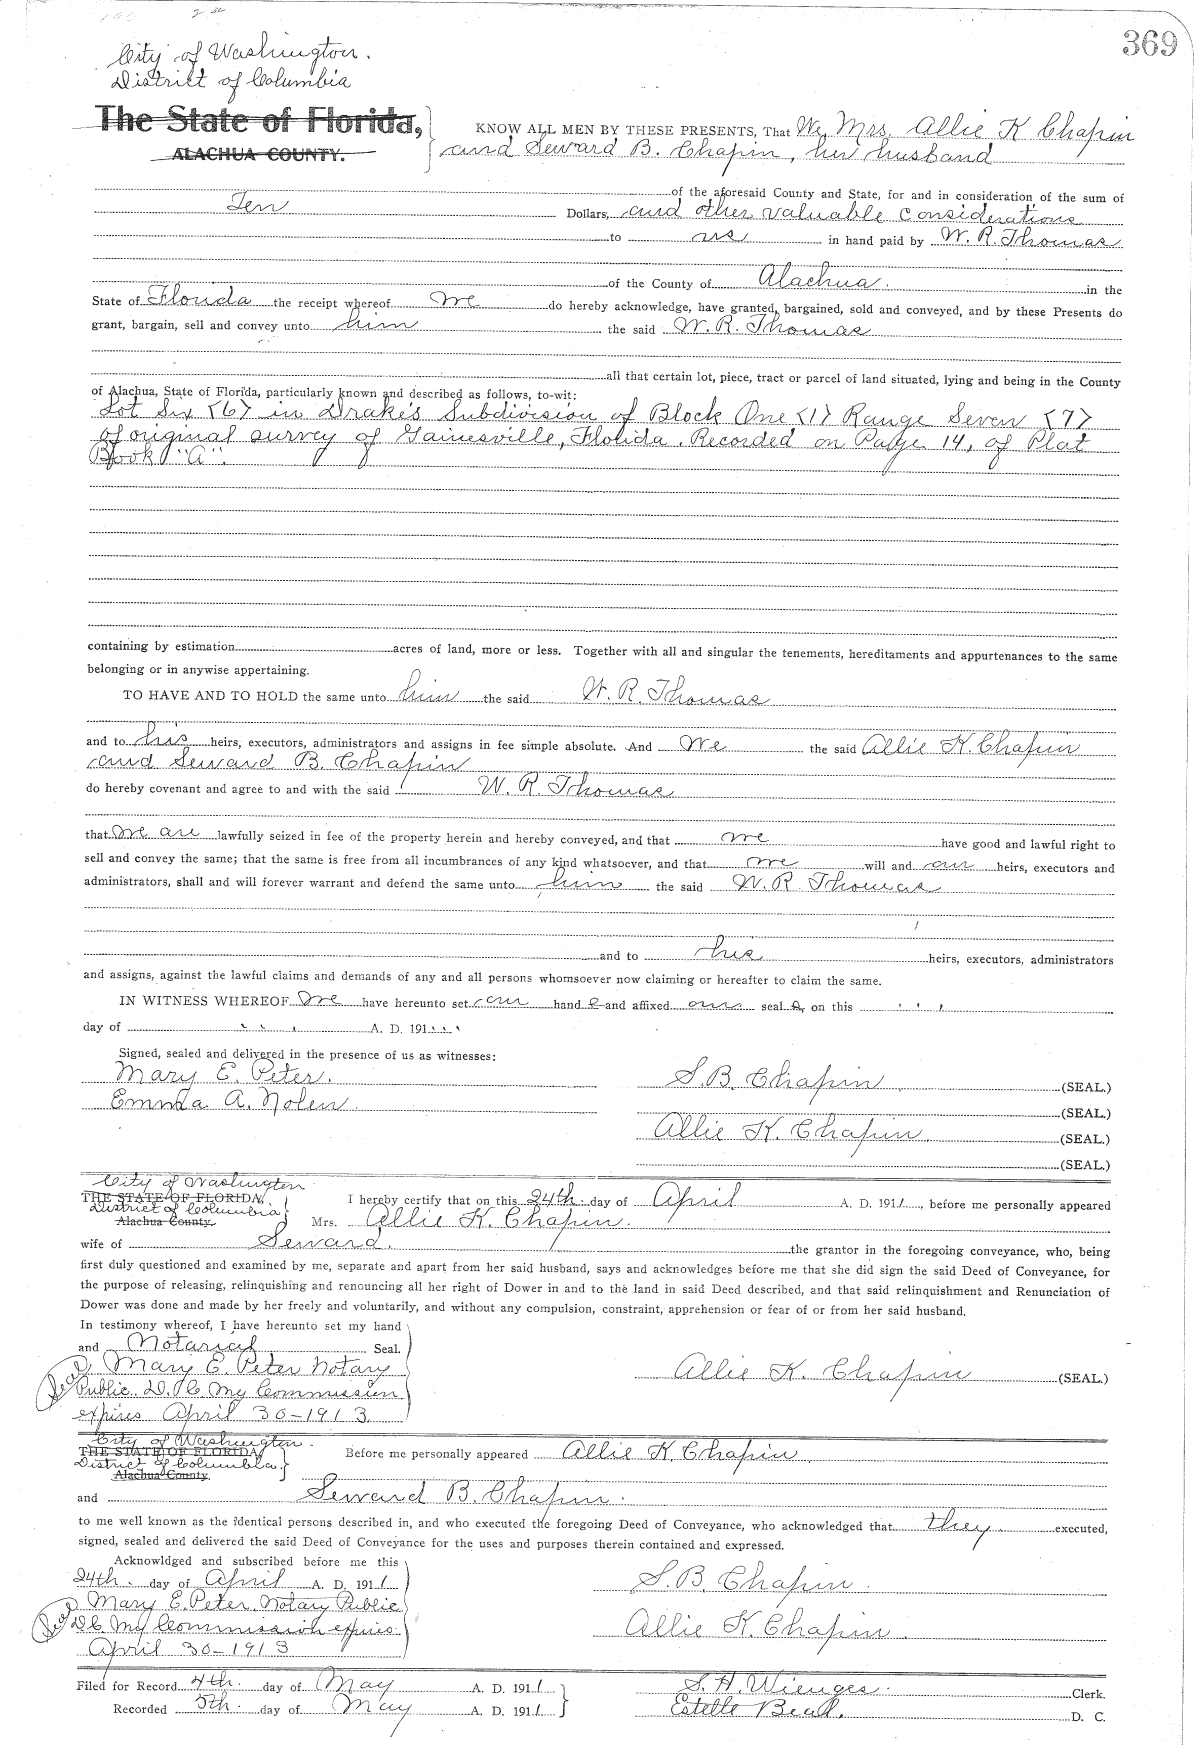 369
City of Washington.
District of Columbia
The State of Florida,
ALACHUA COUNTY.
KNOW ALL MEN BY THESE PRESENTS, That We, Mrs. Allie K Chapin
and Seward B. Chapin, her husband
of the aforesaid County and State, for and in consideration of the sum of
Ten Dollars, and other valuable considerations
to us in hand paid by W. R. Thomas
of the County of Alachua. in the
State of Florida the receipt whereof we do hereby acknowledge, have granted, bargained, sold and conveyed, and by these Presents do
grant, bargain, sell and convey unto him the said W. R. Thomas
all that certain lot, piece, tract or parcel of land situated, lying and being in the County
of Alachua, State of Florida, particularly known and described as follows, to-wit:
Lot Six <6> in Drake's Subdivision of Block One <1> Range Seven <7>
of original survey of Gainesville, Florida. Recorded on Page 14, of Plat
Book "A".
containing by estimation acres of land, more or less. Together with all and singular the tenements, hereditaments and appurtenances to the same
belonging or in anywise appertaining.
TO HAVE AND TO HOLD the same unto him the said W. R. Thomas
and to his heirs, executors, administrators and assigns in fee simple absolute. And we the said Allie K. Chapin
and Seward B. Chapin
do hereby covenant and agree to and with the said W. R. Thomas
that we are lawfully seized in fee of the property herein and hereby conveyed, and that we have good and lawful right to
sell and convey the same; that the same is free from all incumbrances of any kind whatsoever, and that we will and our heirs, executors and
administrators, shall and will forever warrant and defend the same unto him the said W. R. Thomas
and to his heirs, executors, administrators
and assigns, against the lawful claims and demands of any and all persons whomsoever now claiming or hereafter to claim the same.
IN WITNESS WHEREOF we have hereunto set our hand s and affixed our seal s, on this
day of A. D. 191
Signed, sealed and delivered in the presence of us as witnesses:
Mary E. Peter. S. B. Chapin (SEAL.)
Emma A. Nolen (SEAL.)
Allie K. Chapin. (SEAL.)
(SEAL.)
City of Washington
THE STATE OF FLORIDA,
District of Columbia
Alachua County.
I hereby certify that on this 24th. day of April A. D. 1911, before me personally appeared
Mrs. Allie K. Chapin.
wife of Seward. the grantor in the foregoing conveyance, who, being
first duly questioned and examined by me, separate and apart from her said husband, says and acknowledges before me that she did sign the said Deed of Conveyance, for
the purpose of releasing, relinquishing and renouncing all her right of Dower in and to the land in said Deed described, and that said relinquishment and Renunciation of
Dower was done and made by her freely and voluntarily, and without any compulsion, constraint, apprehension or fear of or from her said husband.
In testimony whereof, I have hereunto set my hand
and Notarial Seal.
Seal Mary E. Peter Notary
Public. D. C. My Commission
expires April 30-1913.
Allie K. Chapin (SEAL.)
City of Washington.
THE STATE OF FLORIDA,
District of Columbia.
Alachua County.
Before me personally appeared Allie K Chapin
and Seward B. Chapin.
to me well known as the identical persons described in, and who executed the foregoing Deed of Conveyance, who acknowledged that they executed,
signed, sealed and delivered the said Deed of Conveyance for the uses and purposes therein contained and expressed.
Acknowldged and subscribed before me this
24th. day of April A. D. 1911
Seal Mary E. Peter. Notary Public
D. C. My Commission expires
April 30-1913
S. B. Chapin.
Allie K. Chapin.
Filed for Record 4th. day of May A. D. 1911 S. H. Wienges. Clerk.
Recorded 5th. day of May A. D. 1911 Estelle Beall. D. C.